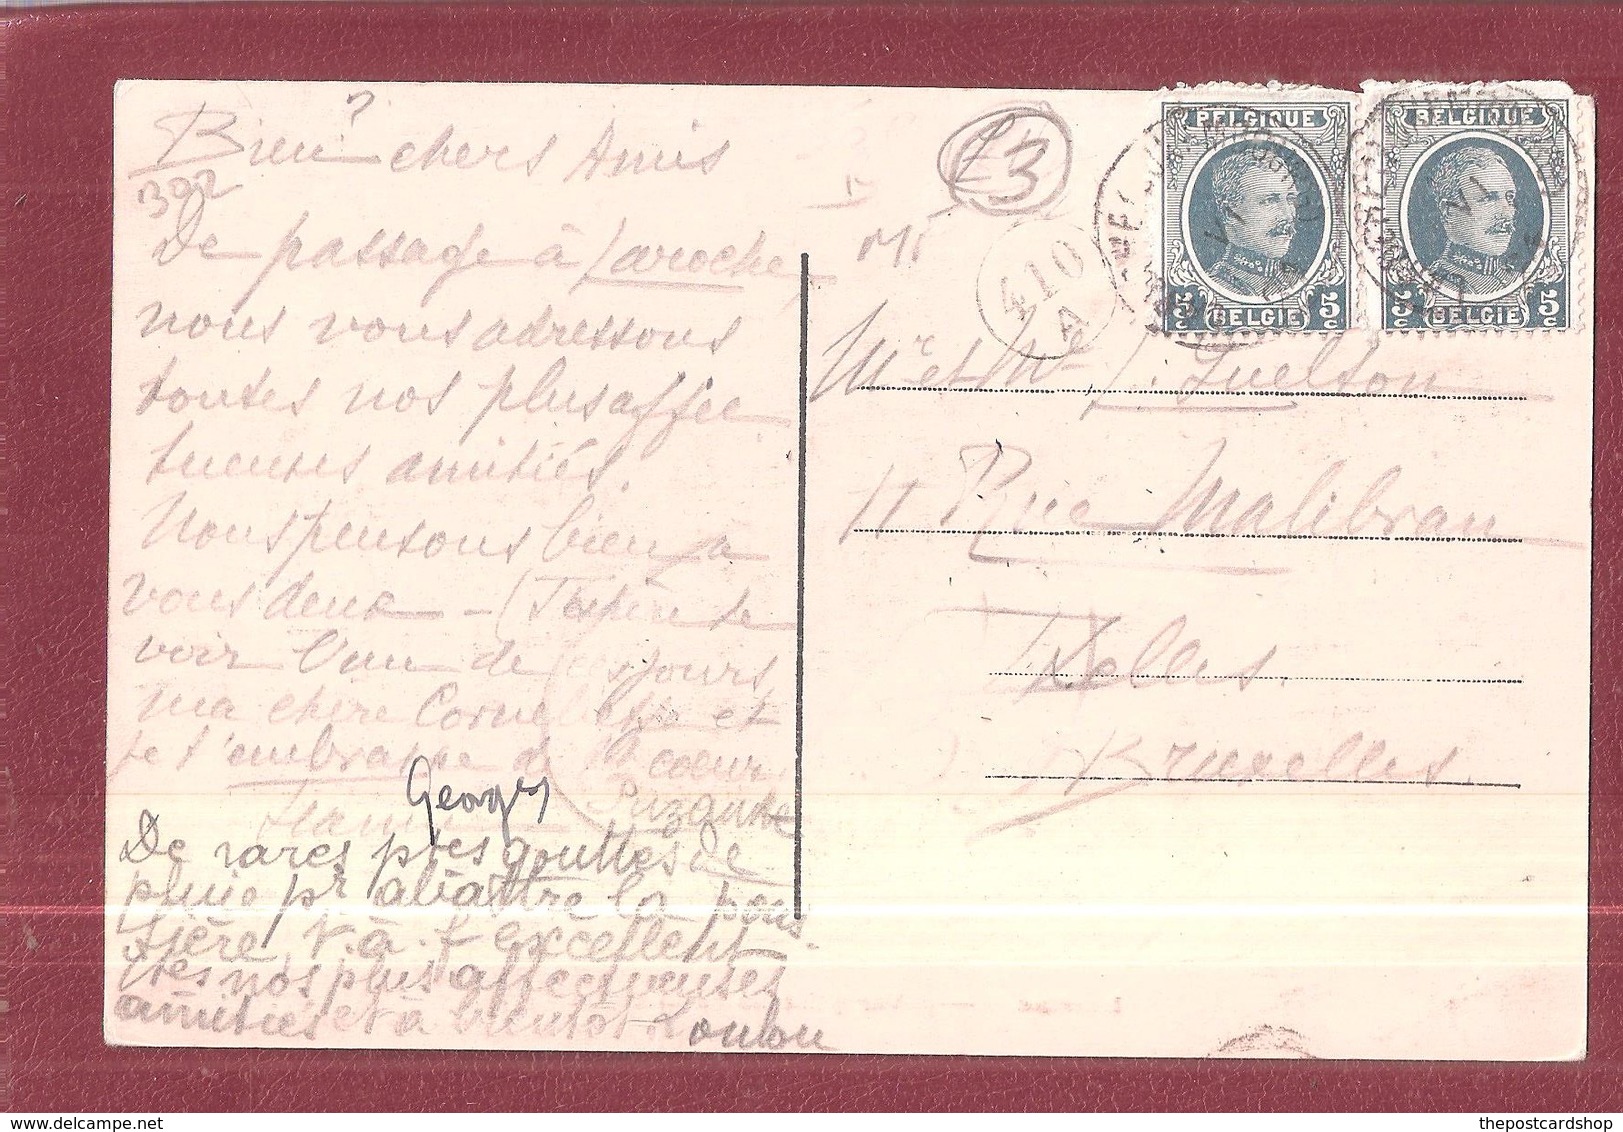 Bien chers Amis
302
De passage à Laroche
nous vous adressons
toutes nos plus affec
tueuses amitiés.
Nous pensons bien à
vous deux - (J'espère te
voir l'un de ces jours
ma chère et
je t'embrasse de tt coeur
Georges
Suzanne
De rares ptes gouttes de
pluie pr abattre la pous
sière, t. à. f excellent
nos plus affectueuses
amitiés et à bientôt. Loulou
£3
410
A
BELGIQUE
5 c BELGIË 5 c
BELGIQUE
5 c BELGIË 5 c
Mr et Me
11 Rue Malibran
Ixelles.
Bruxelles.
thepostcardshop